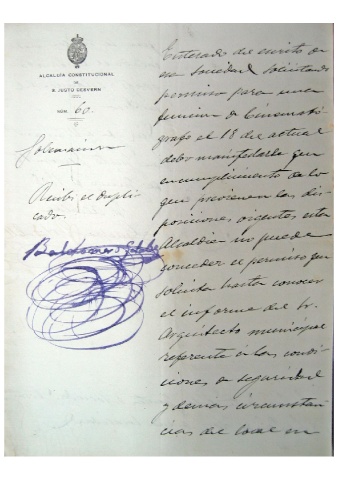 ALCALDÍA CONSTITUCIONAL
DE
S. JUSTO DESVERN
NÚM. 60
Recibí el dupli
cado.
Enterado del escrito de
esa sociedad solicitando
permiso para una
funcion de Cinemató
grafo el 18 del actual
debo manifestarle que
en cumplimiento de lo
que previenen las dis
posiciones vigentes, esta
Alcaldia no puede
conceder el permiso que
solicita hasta conocer
el informe del Sr.
Arquitecto municipal
referente a las condi
ciones de seguridad
y demas circunstan
cias del local en